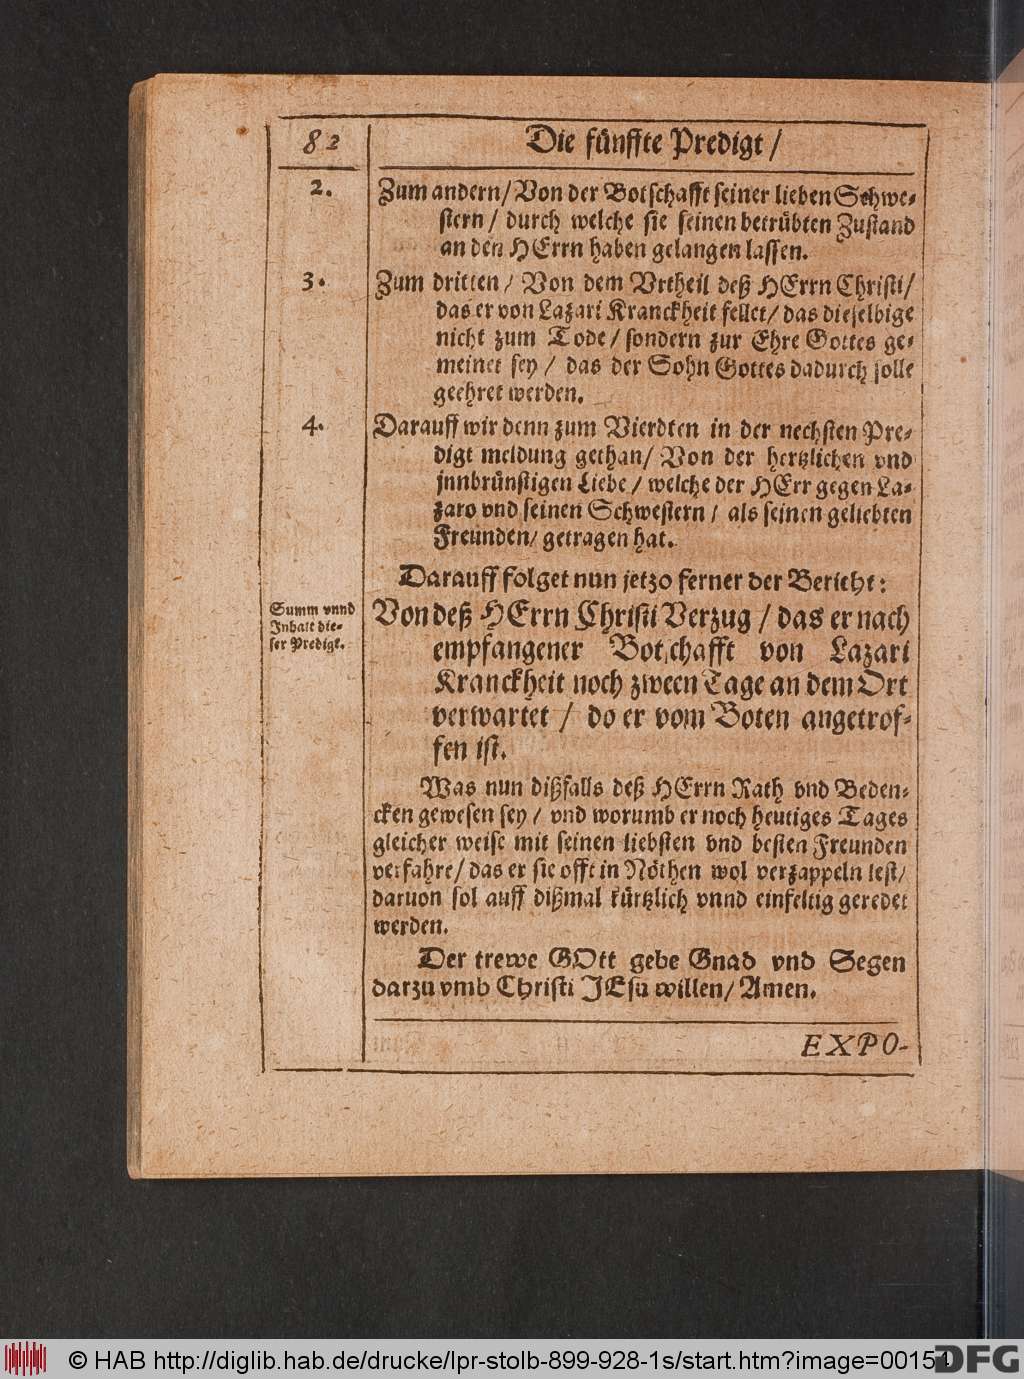 82
Die fünffte Predigt /
2.
Zum andern / Von der Botschafft seiner lieben Schwe-
stern / durch welche sie seinen betrübten Zustand
an den HErrn haben gelangen lassen.
3.
Zum dritten / Von dem Vrtheil deß HErrn Christi /
das er von Lazari Kranckheit fellet / das dieselbige
nicht zum Tode / sondern zur Ehre Gottes ge-
meinet sey / das der Sohn Gottes dadurch solle
geehret werden.
4.
Darauff wir denn zum Vierdten in der nechsten Pre-
digt meldung gethan / Von der hertzlichen vnd
jnnbrünstigen Liebe / welche der HErr gegen La-
zaro vnd seinen Schwestern / als seinen geliebten
Freunden / getragen hat.
Darauff folget nun jetzo ferner der Bericht:
Summ vnnd
Inhalt die-
ser Predigt.
Von deß HErrn Christi Verzug / das er nach
empfangener Botschafft von Lazari
Kranckheit noch zween Tage an dem Ort
verwartet / do er vom Boten angetrof-
fen ist.
Was nun dißfalls deß HErrn Rath vnd Beden-
cken gewesen sey / vnd worumb er noch heutiges Tages
gleicher weise mit seinen liebsten vnd besten Freunden
verfahre / das er sie offt in Nöthen wol verzappeln lest /
daruon sol auff dißmal kürtzlich vnnd einfeltig geredet
werden.
Der trewe GOtt gebe Gnad vnd Segen
darzu vmb Christi JEsu willen / Amen.
EXPO-
© HAB http://diglib.hab.de/drucke/lpr-stolb-899-928-1s/start.htm?image=00154
DFG